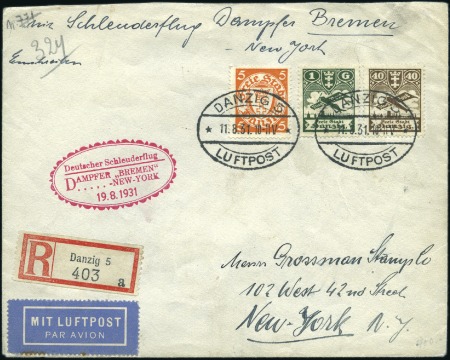 Schleuderflug Dampfer Bremen
New York
Einschreiben
5 5
Freie Stadt
Danzig
1 G
Freie Stadt
Danzig
40 40
Freie Stadt
Danzig
DANZIG 5
* 11.8.31.10-11V *
LUFTPOST
DANZIG 5
LUFTPOST
Deutscher Schleuderflug
DAMPFER „BREMEN"
-NEW-YORK
19.8.1931
R
Danzig 5
403 a
MIT LUFTPOST
PAR AVION
Herrn Grossman Stamp Co
102 West 42nd Street
New-York N.Y.